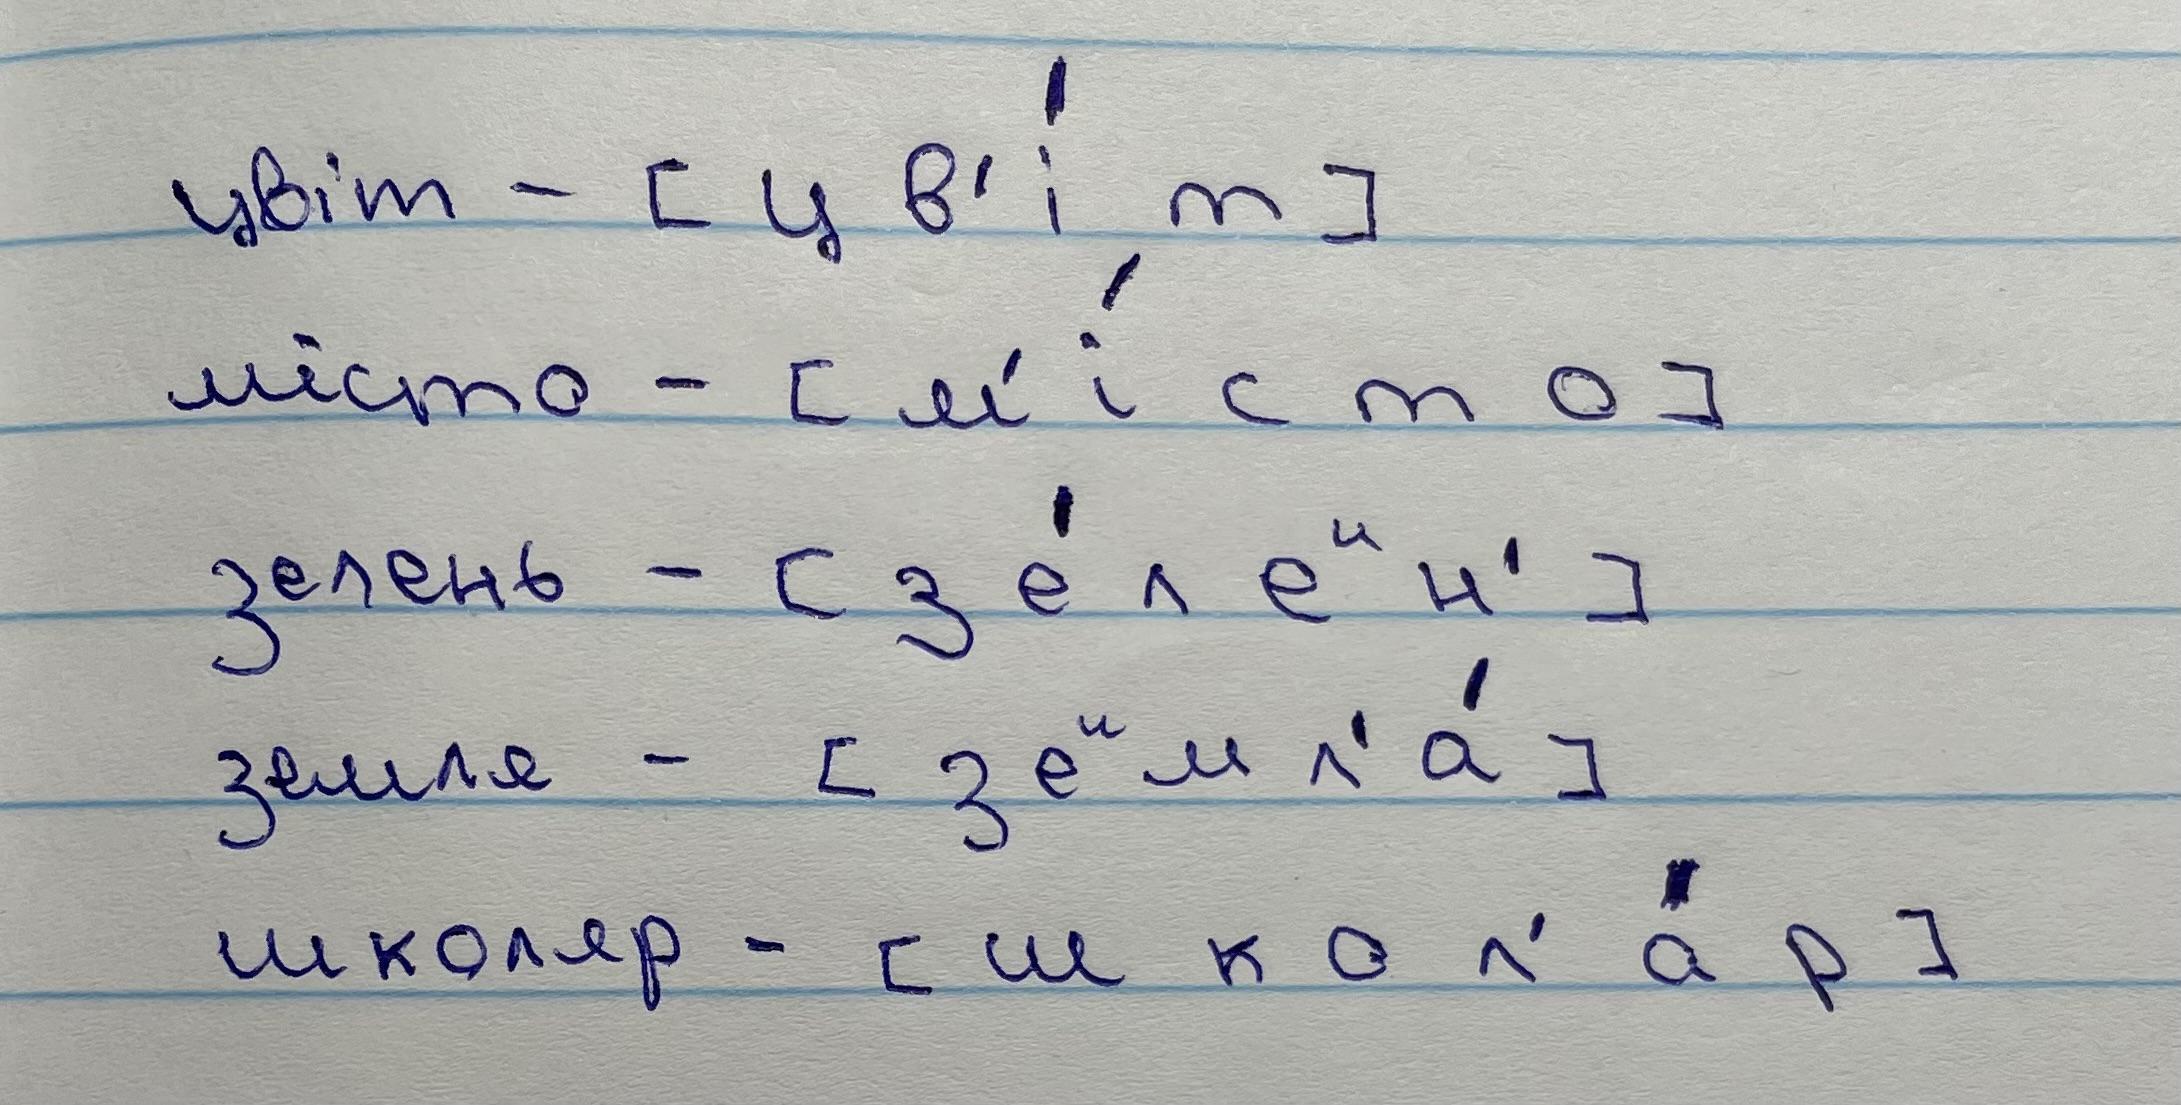 цвіт - [ц в' і́ т]
місто - [м' і́ с т о]
зелень - [з е́ л еᶦ н']
земля - [з еᶦ м л' а́]
школяр - [ш к о л' а́ р]